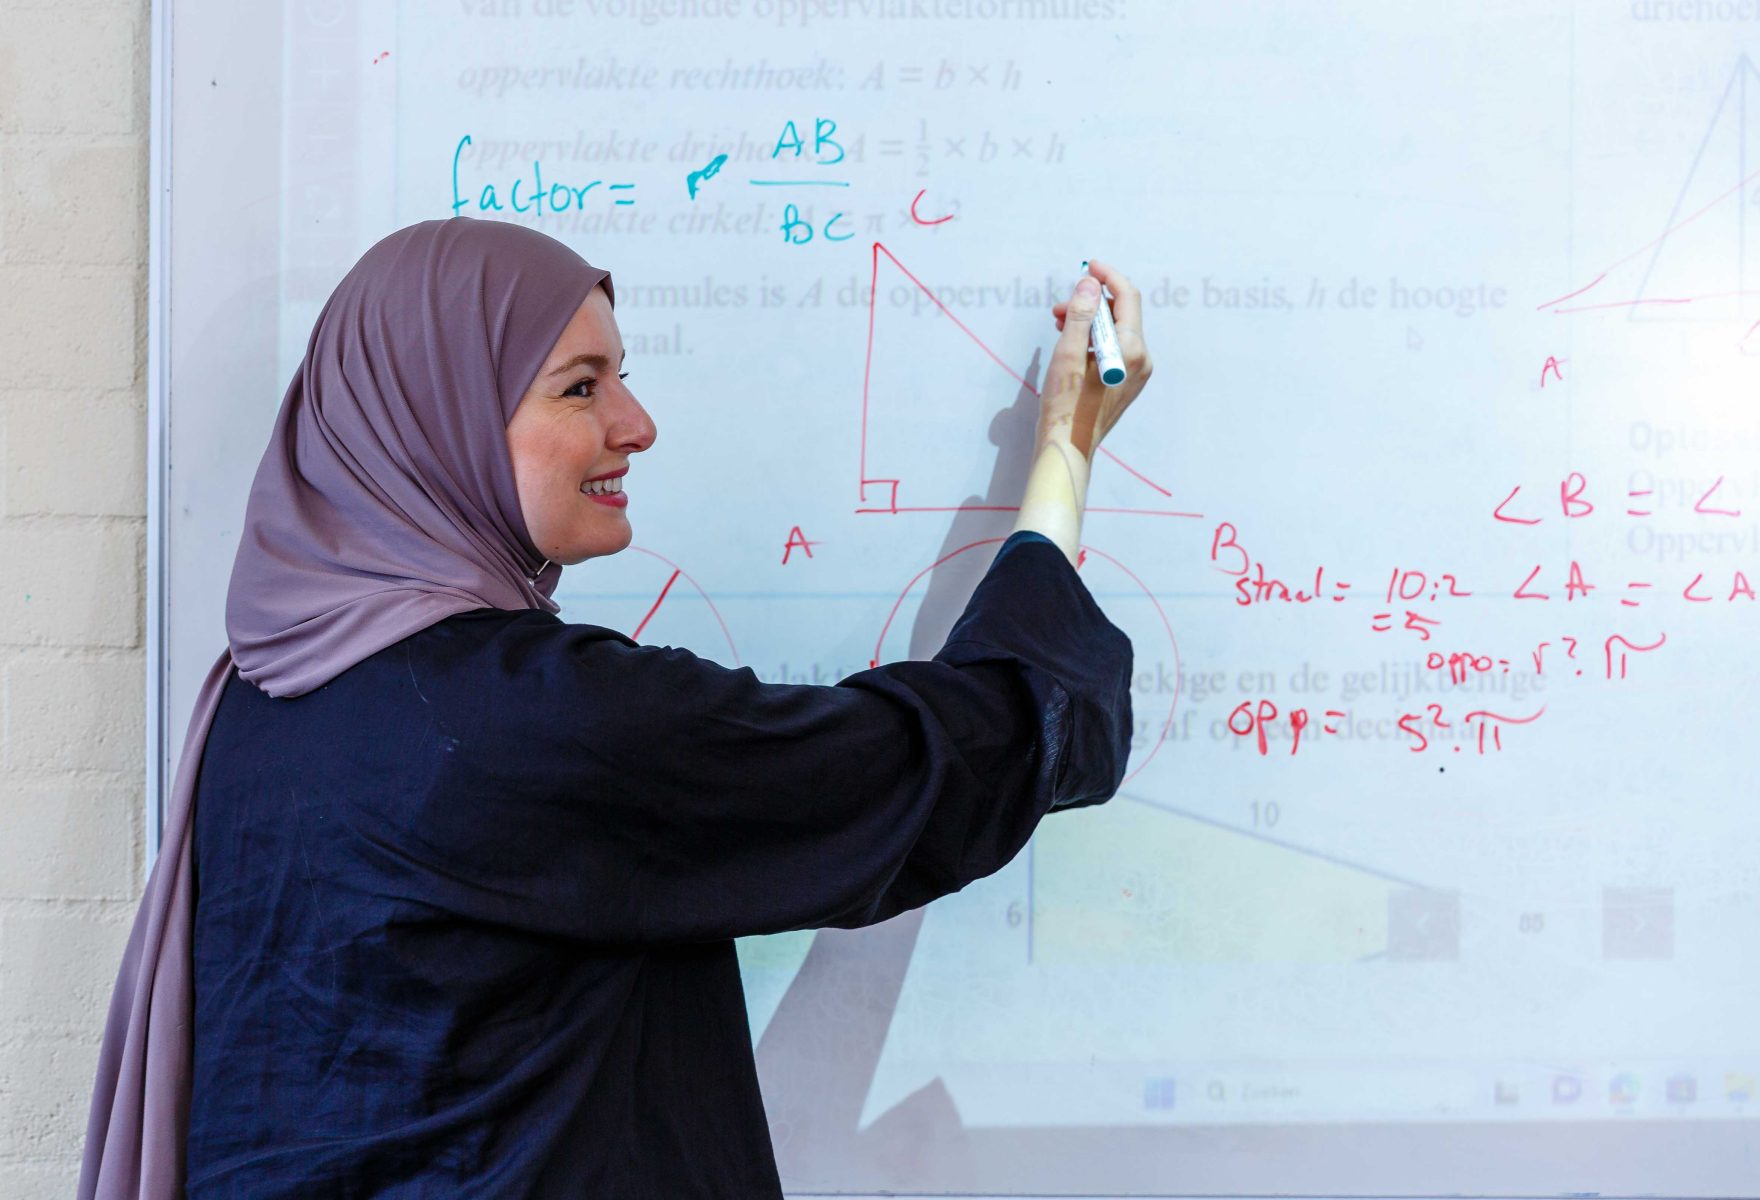 van de volgende oppervlakteformules:
oppervlakte rechthoek: A = b × h
oppervlakte driehoek: A = 1/2 × b × h
oppervlakte cirkel: A = π × r²
ormules is A de oppervlak de basis, h de hoogte
raal.
factor = AB/BC
C
A
B
A
Oppervl
∠B = ∠
straal = 10:2
= 5
∠A = ∠A
oppo = r². π
opp = 5². π
ekige en de gelijkbenige
g af op een decimaal.
10
6
85
Zoeken